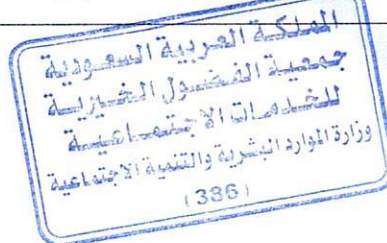 المملكة العربية السعودية
جمعية الفضول الخيرية
للخدمات الاجتماعية
وزارة الموارد البشرية والتنمية الاجتماعية
(336)